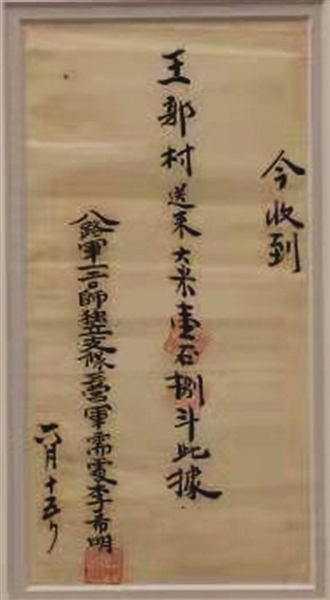 今收到
王郭村送来大米壹石捌斗此據
八路軍一二〇師獨立支隊三营軍需處李希明
六月十五日